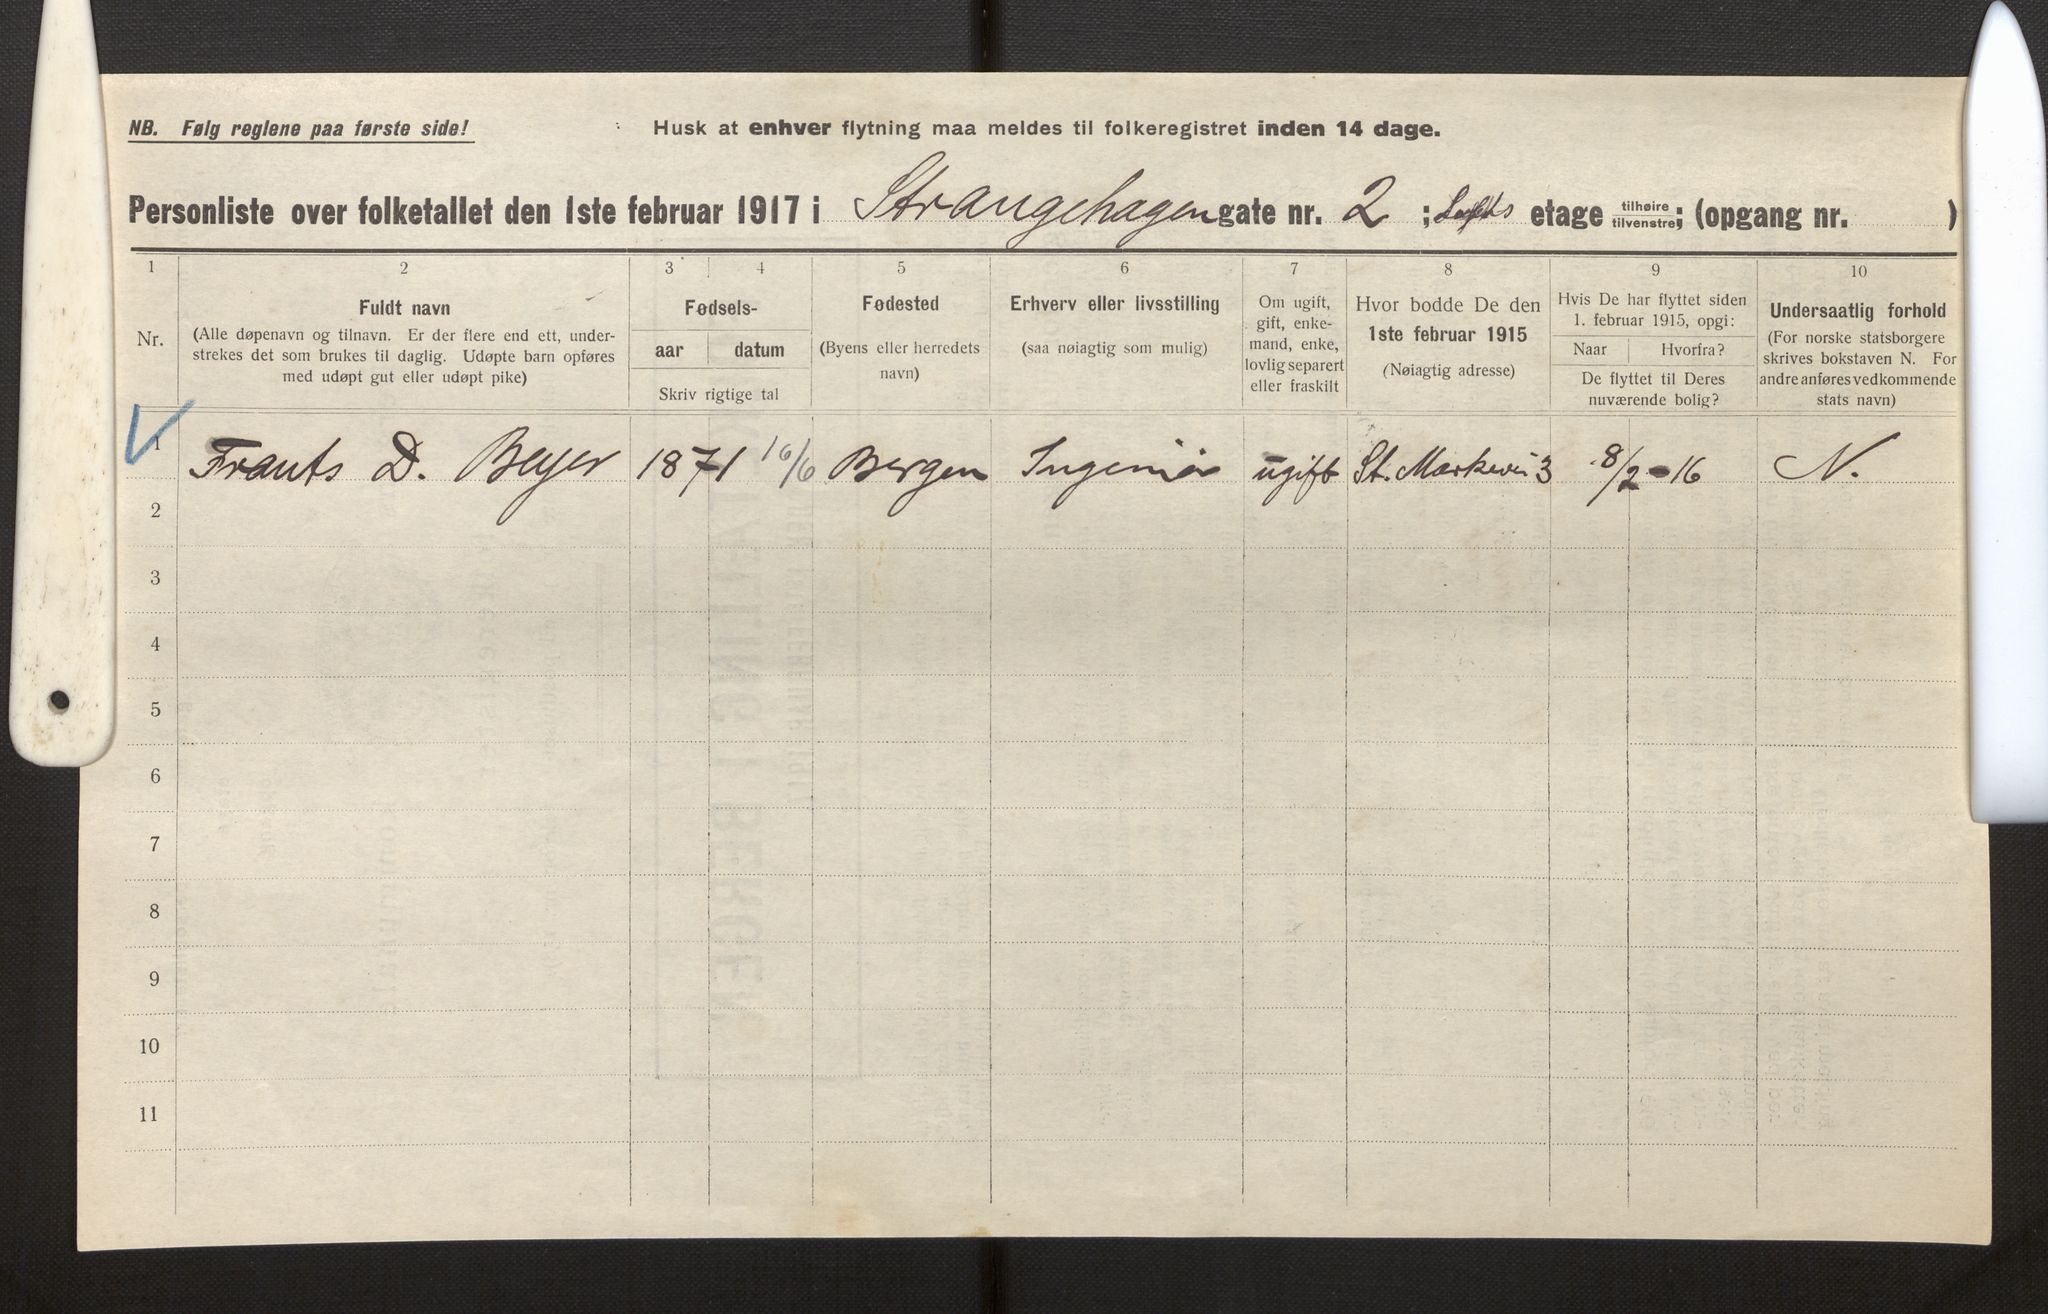 NB. Følg reglene paa første side! Husk at enhver flytning maa meldes til folkeregistret inden 14 dage.
Personliste over folketallet den 1ste februar 1917 i Strangehagen gate nr. 2 ; Lofts etage tilhøire tilvenstre; (opgang nr. )
1 2 3 4 5 6 7 8 9 10
Nr.
Fuldt navn
(Alle døpenavn og tilnavn. Er der flere end ett, under-
strekes det som brukes til daglig. Udøpte barn opføres
med udøpt gut eller udøpt pike)
Fødsels-
aar datum
Skriv rigtige tal
Fødested
(Byens eller herredets
navn)
Erhverv eller livsstilling
(saa nøiagtig som mulig)
Om ugift,
gift, enke-
mand, enke,
lovlig separert
eller fraskilt
Hvor bodde De den
1ste februar 1915
(Nøiagtig adresse)
Hvis De har flyttet siden
1. februar 1915, opgi:
Naar Hvorfra?
De flyttet til Deres
nuværende bolig?
Undersaatlig forhold
(For norske statsborgere
skrives bokstaven N. For
andre anføres vedkommende
stats navn)
1 Frants D. Beyer 1871 16/6 Bergen Ingeniør ugift St. Markevei 3 8/2-16 N.
2
3
4
5
6
7
8
9
10
11